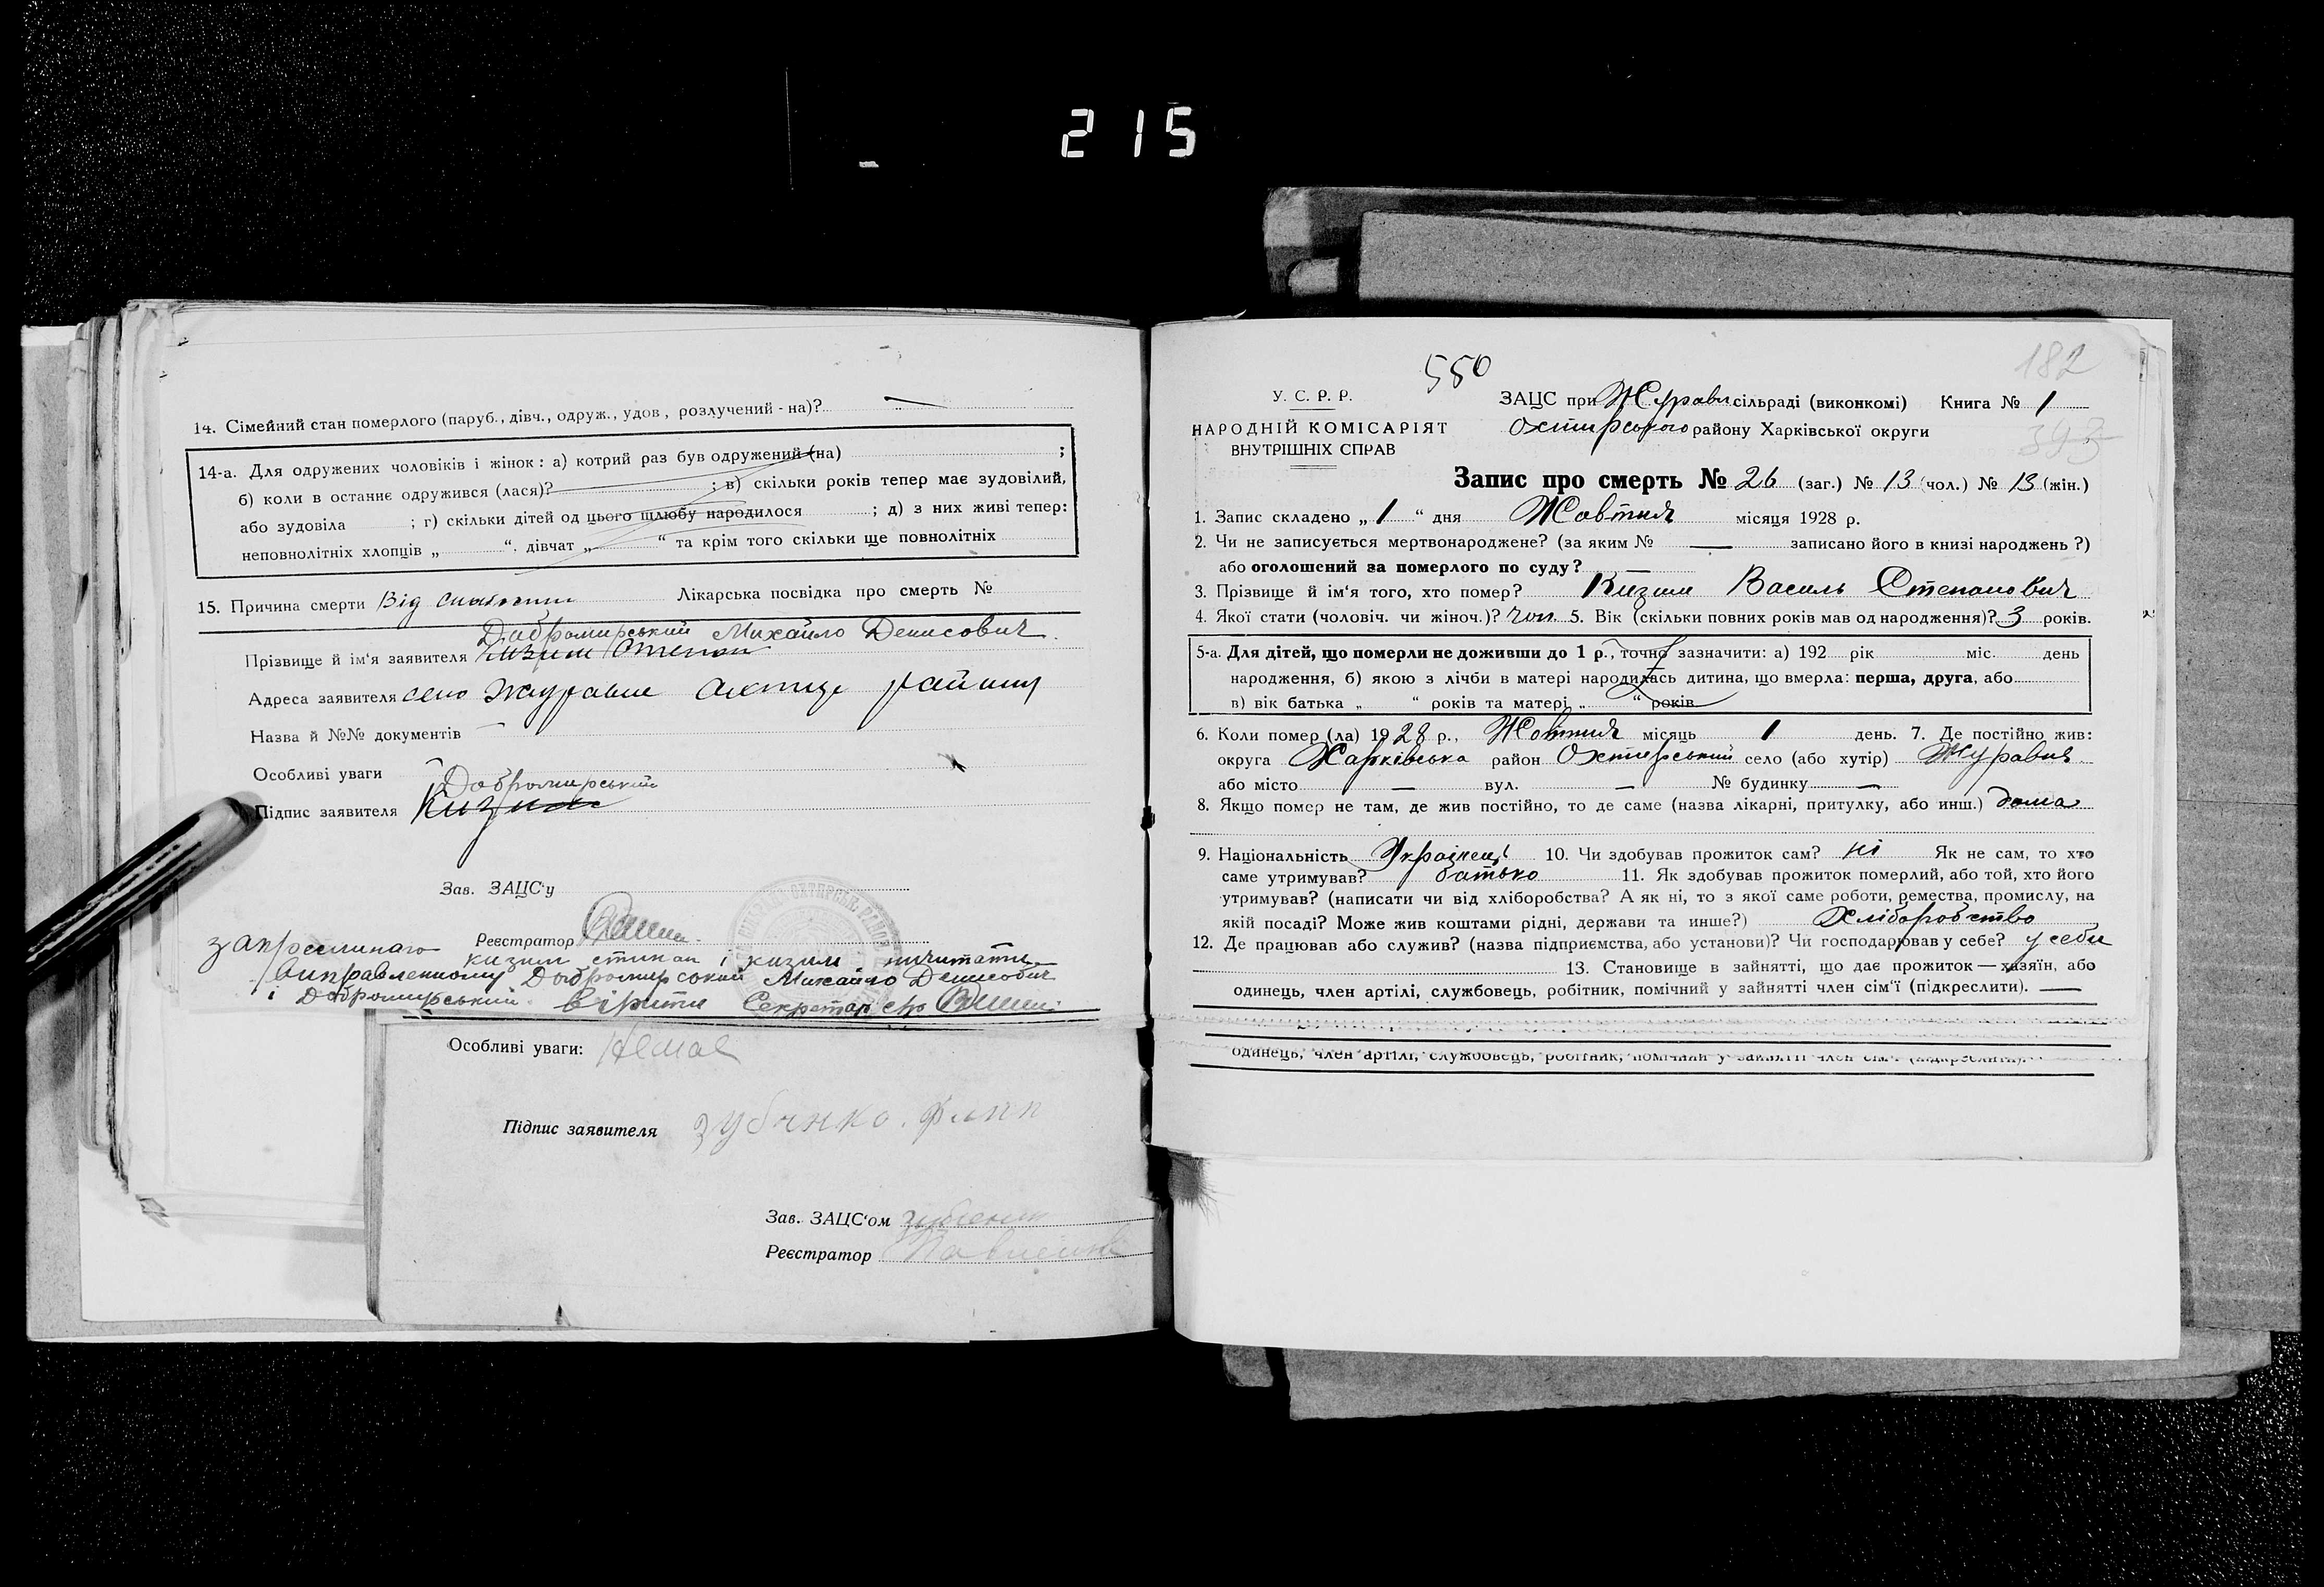 215
14. Сімейний стан померлого (паруб., дівч., одруж., удов., розлучений - на)? —
14-а. Для одружених чоловіків і жінок: а) котрий раз був одружений (на) ;
б) коли в останнє одружився (лася)? ; в) скільки років тепер має зудовілий,
або зудовіла ; г) скільки дітей од цього шлюбу народилося ; д) з них живі тепер:
неповнолітніх хлопців „ “. дівчат „ “ та крім того скільки ще повнолітніх
15. Причина смерти Від Лікарська посвідка про смерть №
Добромирський Михайло Денисович.
Прізвище й ім‘я заявителя Кизим Степан
Адреса заявителя село Журавне Охтир району
Назва й №№ документів —
Особливі уваги
Добромирський
Підпис заявителя Кизим
Зав. ЗАЦС‘у
Реєстратор
кизим степан і кизим нечитати
виправленному Добромирський Михайло Денисович
і Добромирський вірити Секретар с/р
Особливі уваги: Немає
Підпис заявителя
Зав. ЗАЦС‘ом
Реєстратор
550
182
У. С. Р. Р.
НАРОДНІЙ КОМІСАРІЯТ
ВНУТРІШНІХ СПРАВ
ЗАЦС при Журавн сільраді (виконкомі) Книга № 1
Охтирського району Харківської округи
Запис про смерть № 26 (заг.) № 13 (чол.) № 13 (жін.)
1. Запис складено „ 1 “ дня Жовтня місяця 1928 р.
2. Чи не записується мертвонароджене? (за яким № — записано його в книзі народжень ?)
або оголошений за померлого по суду? —
3. Прізвище й ім‘я того, хто помер? Кизим Василь Степанович
4. Якої стати (чоловіч. чи жіноч.)? чол. 5. Вік (скільки повних років мав од народження)? 3 років.
5-а. Для дітей, що померли не доживши до 1 р., точно зазначити: а) 192 рік міс. день
народження, б) якою з лічби в матері народилась дитина, що вмерла: перша, друга, або
в) вік батька „ “ років та матері „ “ років
6. Коли помер (ла) 1928 р., Жовтня місяць 1 день. 7. Де постійно жив:
округа Харківська район Охтирський село (або хутір) Журавне
або місто — вул. — № будинку —
8. Якщо помер не там, де жив постійно, то де саме (назва лікарні, притулку, або инш.) дома
9. Національність Українець 10. Чи здобував прожиток сам? ні Як не сам, то хто
саме утримував? батько 11. Як здобував прожиток померлий, або той, хто його
утримував? (написати чи від хліборобства? А як ні, то з якої саме роботи, ремества, промислу, на
якій посаді? Може жив коштами рідні, держави та инше?) Хліборобство
12. Де працював або служив? (назва підприємства, або установи)? Чи господарював у себе? у себе
13. Становище в зайнятті, що дає прожиток — хазяїн, або
одинець, член артілі, службовець, робітник, помічний у зайнятті член сім‘ї (підкреслити). —
одинець, член артілі, службовець, робітник, помічний у зайнятті член сім‘ї (підкреслити).